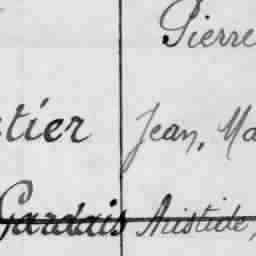 Pierre
tier Jean, Ma
Gardais Aristide,